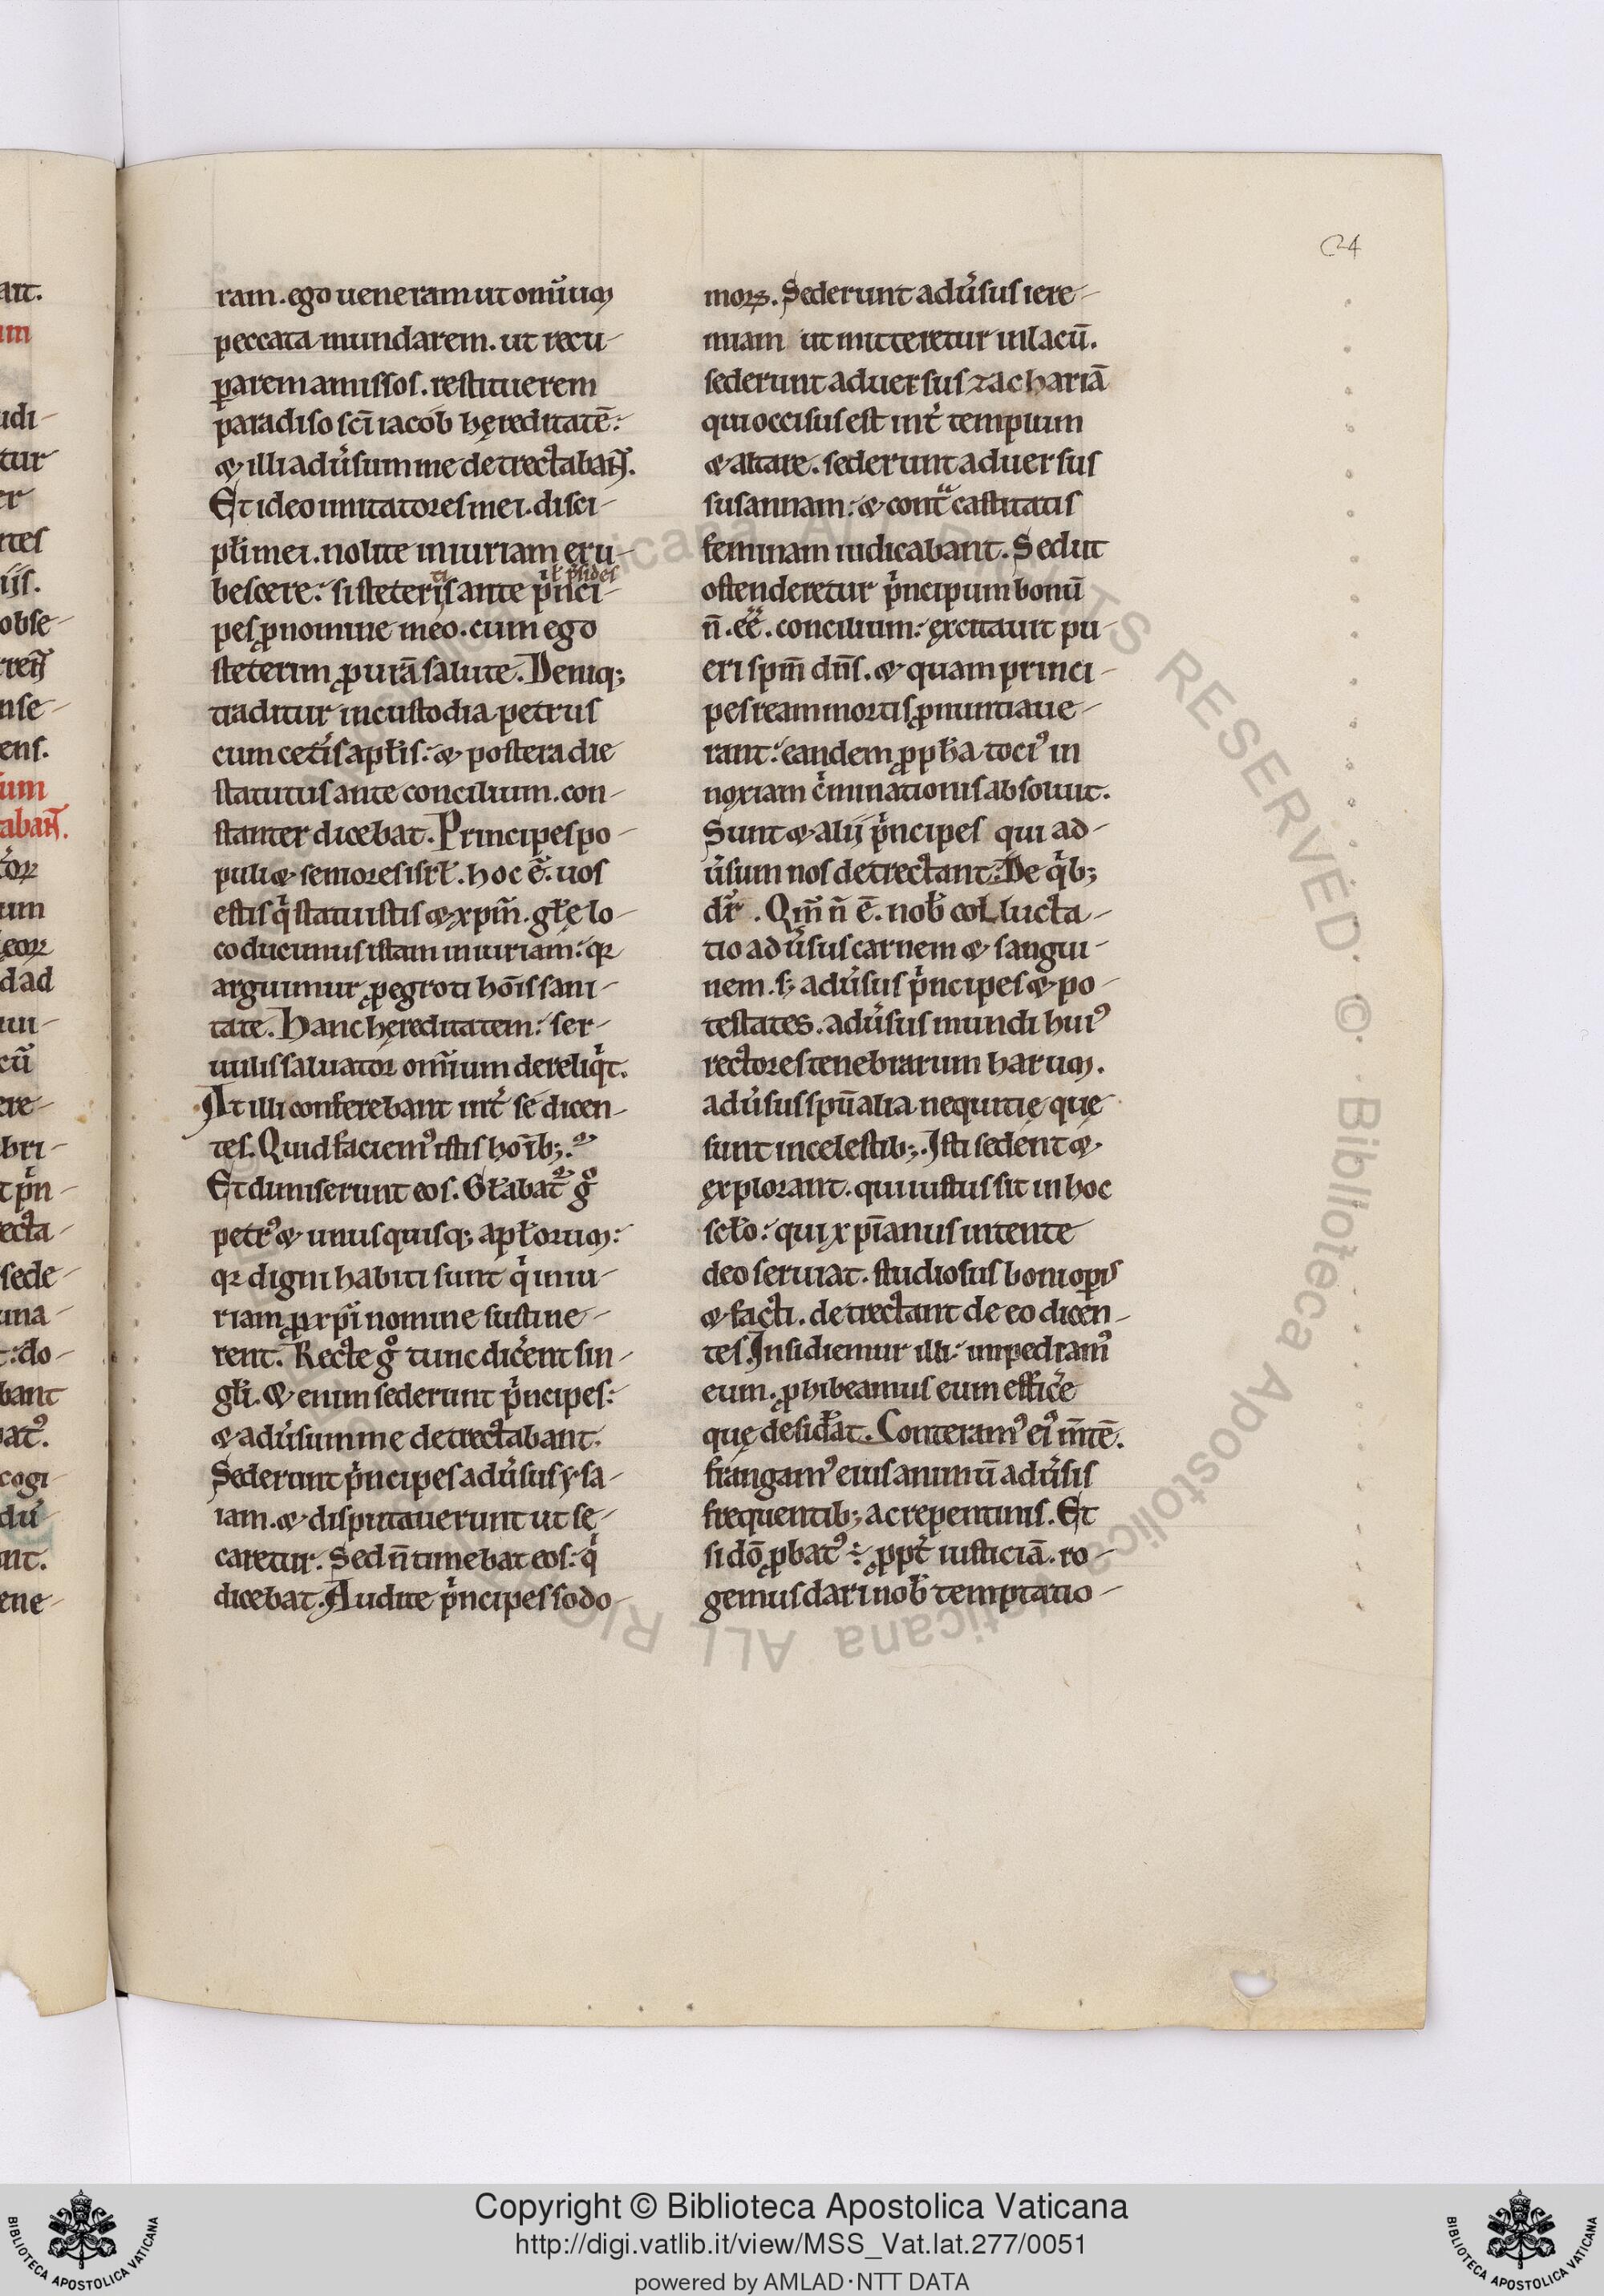 24
ram. ego ueneram ut omīuꝫ
peccata mundarem. ut recu-
ꝑarem amissos. restituerem
paradiso sc̄i iacob hęreditatē:
⁊ illi adu͛sum me detrectabant.
Et ideo imitatores mei. disci-
pli mei. nolite iniuriam eru-
ti
ł p̄sides
bescere: si steteris ante pͥnci-
pes ꝓ nomine meo. cum ego
steterim ꝓ uīa salute. Deniqꝫ
traditur in custodia petrus
cum cet͛is apłis: ⁊ postera die
statutus ante concilium. con-
stanter dicebat. Principes po-
puli ⁊ seniores isrł. hoc ē. uos
estis qͥ statuistis ⁊ xp̄m. głę lo-
co ducimus istam iniuriam: qꝛ
arguimur ꝓ egroti hōis sani-
tate. Hanc hęreditatem: ser-
uulis saluator omīum dereliqͥt.
At illi conferebant int͛ se dicen-
tes. Quid faciemꝰ istis hoīb;. ⁊
Et dimiserunt eos. Głabat͛ gͦ
petrꝰ ⁊ unusquisqꝫ apłoruꝫ:
qꝛ digni habiti sunt qͥ iniu-
riam ꝓ xp̄i nomine sustine-
rent. Recte gͦ tunc dic͛ent sin-
głi. ⁊ enim sederunt pͥncipes:
⁊ adu͛sum me detrectabant.
Sederunt pͥncipes adu͛sus ysa-
iam. ⁊ disputauerunt ut se-
caretur. Sed n̄ timebat eos: qͥ
dicebat. Audite pͥncipes sodo-
moꝝ. Sederunt adu͛sus iere-
miam ut mitteretur in lacū.
sederunt aduersus zachariā
qui occisus est int͛ templum
⁊ altare. sederunt aduersus
susannam: ⁊ contᷓ castitatis
feminam iudicabant. Sed ut
ostenderetur pͥncipum bonū
n̄. eē. concilium: excitauit pu-
eri sp̄m dn̄s. ⁊ quam princi-
pes ream mortis ꝓnuntiaue-
rant: eandem ꝓpħa tociꝰ in
noxiam cͥminationis absoluit.
Sunt ⁊ alii pͥncipes qui ad-
u͛sum nos detrectant: De qͥb;
dr̄. Qm̄ n̄ ē. nob̄ colLucta-
tio adu͛sus carnem ⁊ sangui-
nem. sꝫ adu͛sus pͥncipes ⁊ po-
testates. adu͛sus mundi huiꝰ
rectores tenebrarum haruꝫ.
adu͛sus spūalia nequitię quę
sunt in celestib;. Isti sedent ⁊
explorant. qui iustus sit in hoc
scło: qui xp̄ianus intente
deo seruiat. studiosus boni oꝑis
⁊ facti. detrectant de eo dicen-
tes. Insidiemur illi: impediamꝰ
eum. ꝓhibeamus eum effic͛e
quę desid͛at. Conteramꝰ eiꝰ m̄tē.
frangamꝰ eius animū adu͛sis
frequentib; ac repentinis. Et
si dō ꝓbatꝰ ÷ ꝓpt͛ iusticiā. ro-
gemus dari nob̄ temptatio-
Copyright © Biblioteca Apostolica Vaticana
http://digi.vatlib.it/view/MSS_Vat.lat.277/0051
powered by AMLAD·NTT DATA